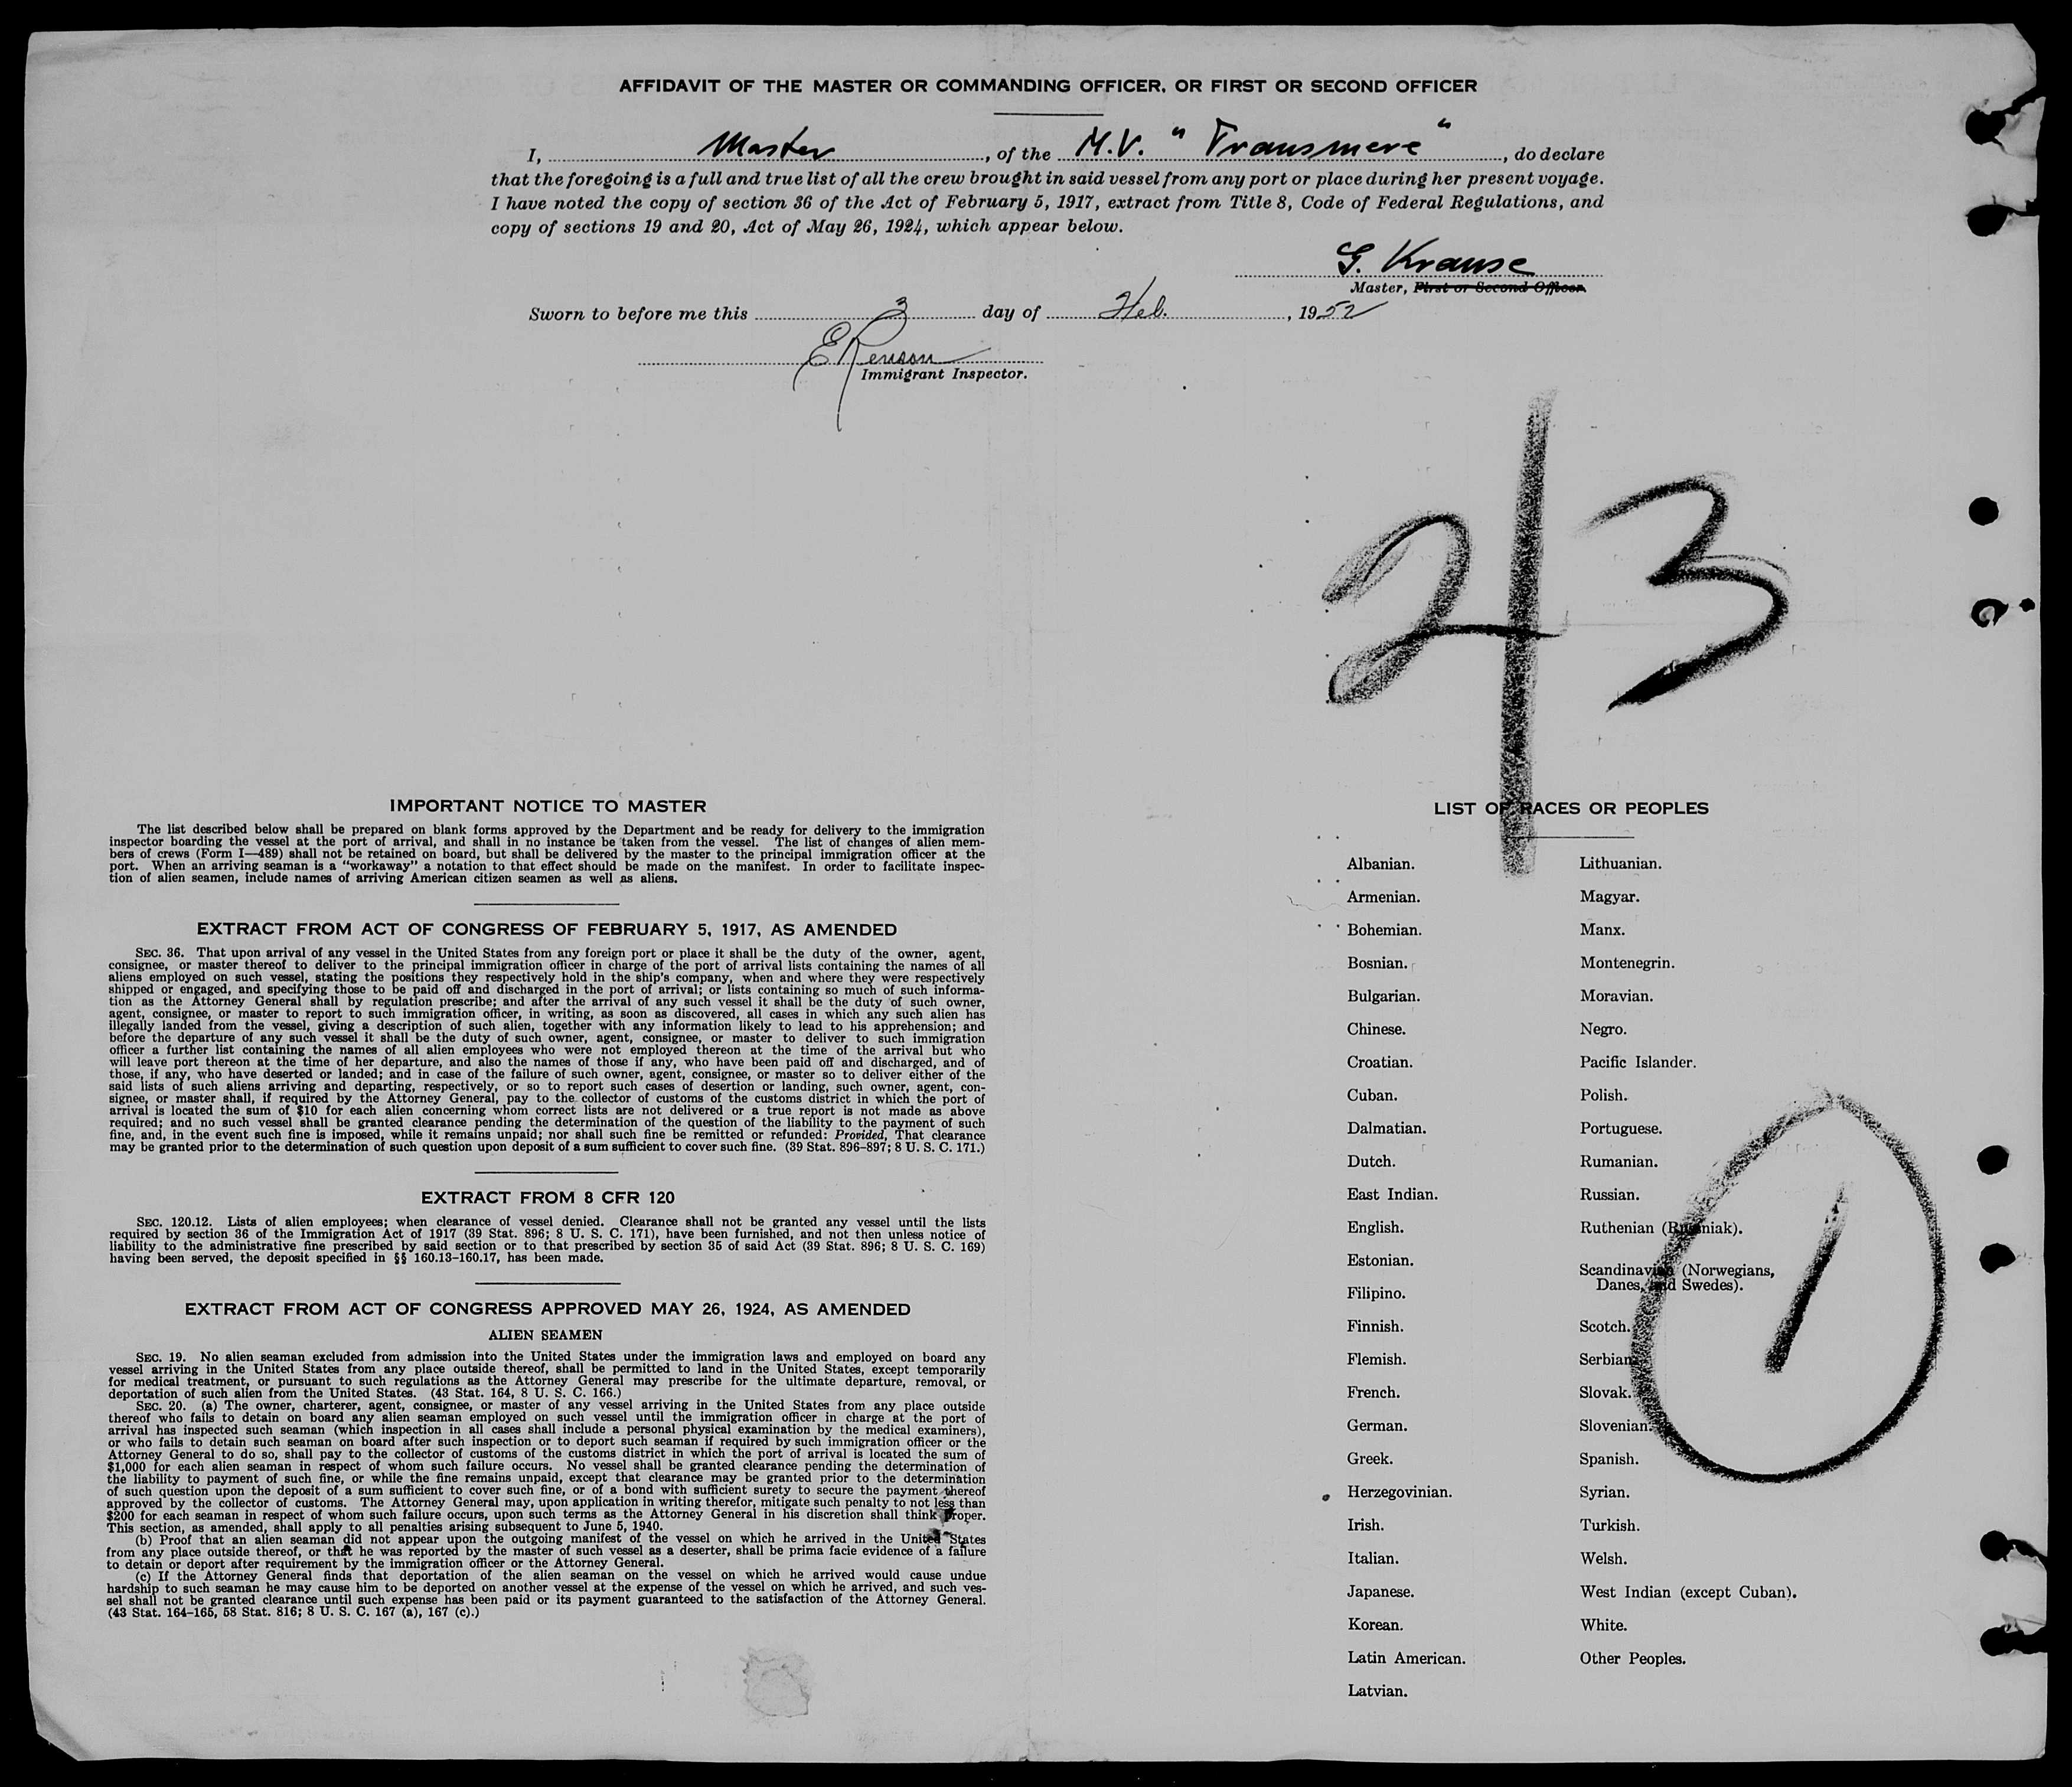 AFFIDAVIT OF THE MASTER OR COMMANDING OFFICER, OR FIRST OR SECOND OFFICER
I, Master, of the M.V. " Transmere ", do declare
that the foregoing is a full and true list of all the crew brought in said vessel from any port or place during her present voyage.
I have noted the copy of section 36 of the Act of February 5, 1917, extract from Title 8, Code of Federal Regulations, and
copy of sections 19 and 20, Act of May 26, 1924, which appear below.
G. Krause
Master, First or Second Officer.
Sworn to before me this 3 day of Feb. , 1952
Immigrant Inspector.
2/3
IMPORTANT NOTICE TO MASTER
The list described below shall be prepared on blank forms approved by the Department and be ready for delivery to the immigration
inspector boarding the vessel at the port of arrival, and shall in no instance be taken from the vessel. The list of changes of alien mem-
bers of crews (Form I—489) shall not be retained on board, but shall be delivered by the master to the principal immigration officer at the
port. When an arriving seaman is a "workaway" a notation to that effect should be made on the manifest. In order to facilitate inspec-
tion of alien seamen, include names of arriving American citizen seamen as well as aliens.
EXTRACT FROM ACT OF CONGRESS OF FEBRUARY 5, 1917, AS AMENDED
SEC. 36. That upon arrival of any vessel in the United States from any foreign port or place it shall be the duty of the owner, agent,
consignee, or master thereof to deliver to the principal immigration officer in charge of the port of arrival lists containing the names of all
aliens employed on such vessel, stating the positions they respectively hold in the ship's company, when and where they were respectively
shipped or engaged, and specifying those to be paid off and discharged in the port of arrival; or lists containing so much of such informa-
tion as the Attorney General shall by regulation prescribe; and after the arrival of any such vessel it shall be the duty of such owner,
agent, consignee, or master to report to such immigration officer, in writing, as soon as discovered, all cases in which any such alien has
illegally landed from the vessel, giving a description of such alien, together with any information likely to lead to his apprehension; and
before the departure of any such vessel it shall be the duty of such owner, agent, consignee, or master to deliver to such immigration
officer a further list containing the names of all alien employees who were not employed thereon at the time of the arrival but who
will leave port thereon at the time of her departure, and also the names of those if any, who have been paid off and discharged, and of
those, if any, who have deserted or landed; and in case of the failure of such owner, agent, consignee, or master so to deliver either of the
said lists of such aliens arriving and departing, respectively, or so to report such cases of desertion or landing, such owner, agent, con-
signee, or master shall, if required by the Attorney General, pay to the collector of customs of the customs district in which the port of
arrival is located the sum of $10 for each alien concerning whom correct lists are not delivered or a true report is not made as above
required; and no such vessel shall be granted clearance pending the determination of the question of the liability to the payment of such
fine, and, in the event such fine is imposed, while it remains unpaid; nor shall such fine be remitted or refunded: Provided, That clearance
may be granted prior to the determination of such question upon deposit of a sum sufficient to cover such fine. (39 Stat. 896–897; 8 U. S. C. 171.)
EXTRACT FROM 8 CFR 120
SEC. 120.12. Lists of alien employees; when clearance of vessel denied. Clearance shall not be granted any vessel until the lists
required by section 36 of the Immigration Act of 1917 (39 Stat. 896; 8 U. S. C. 171), have been furnished, and not then unless notice of
liability to the administrative fine prescribed by said section or to that prescribed by section 35 of said Act (39 Stat. 896; 8 U. S. C. 169)
having been served, the deposit specified in §§ 160.13–160.17, has been made.
EXTRACT FROM ACT OF CONGRESS APPROVED MAY 26, 1924, AS AMENDED
ALIEN SEAMEN
SEC. 19. No alien seaman excluded from admission into the United States under the immigration laws and employed on board any
vessel arriving in the United States from any place outside thereof, shall be permitted to land in the United States, except temporarily
for medical treatment, or pursuant to such regulations as the Attorney General may prescribe for the ultimate departure, removal, or
deportation of such alien from the United States. (43 Stat. 164, 8 U. S. C. 166.)
SEC. 20. (a) The owner, charterer, agent, consignee, or master of any vessel arriving in the United States from any place outside
thereof who fails to detain on board any alien seaman employed on such vessel until the immigration officer in charge at the port of
arrival has inspected such seaman (which inspection in all cases shall include a personal physical examination by the medical examiners),
or who fails to detain such seaman on board after such inspection or to deport such seaman if required by such immigration officer or the
Attorney General to do so, shall pay to the collector of customs of the customs district in which the port of arrival is located the sum of
$1,000 for each alien seaman in respect of whom such failure occurs. No vessel shall be granted clearance pending the determination of
the liability to payment of such fine, or while the fine remains unpaid, except that clearance may be granted prior to the determination
of such question upon the deposit of a sum sufficient to cover such fine, or of a bond with sufficient surety to secure the payment thereof
approved by the collector of customs. The Attorney General may, upon application in writing therefor, mitigate such penalty to not less than
$200 for each seaman in respect of whom such failure occurs, upon such terms as the Attorney General in his discretion shall think proper.
This section, as amended, shall apply to all penalties arising subsequent to June 5, 1940.
(b) Proof that an alien seaman did not appear upon the outgoing manifest of the vessel on which he arrived in the United States
from any place outside thereof, or that he was reported by the master of such vessel as a deserter, shall be prima facie evidence of a failure
to detain or deport after requirement by the immigration officer or the Attorney General.
(c) If the Attorney General finds that deportation of the alien seaman on the vessel on which he arrived would cause undue
hardship to such seaman he may cause him to be deported on another vessel at the expense of the vessel on which he arrived, and such ves-
sel shall not be granted clearance until such expense has been paid or its payment guaranteed to the satisfaction of the Attorney General.
(43 Stat. 164–165, 58 Stat. 816; 8 U. S. C. 167 (a), 167 (c).)
LIST OF RACES OR PEOPLES
Albanian.
Armenian.
Bohemian.
Bosnian.
Bulgarian.
Chinese.
Croatian.
Cuban.
Dalmatian.
Dutch.
East Indian.
English.
Estonian.
Filipino.
Finnish.
Flemish.
French.
German.
Greek.
Herzegovinian.
Irish.
Italian.
Japanese.
Korean.
Latin American.
Latvian.
Lithuanian.
Magyar.
Manx.
Montenegrin.
Moravian.
Negro.
Pacific Islander.
Polish.
Portuguese.
Rumanian.
Russian.
Ruthenian (Russniak).
Scandinavian (Norwegians,
Danes, and Swedes).
Scotch.
Serbian.
Slovak.
Slovenian.
Spanish.
Syrian.
Turkish.
Welsh.
West Indian (except Cuban).
White.
Other Peoples.
1